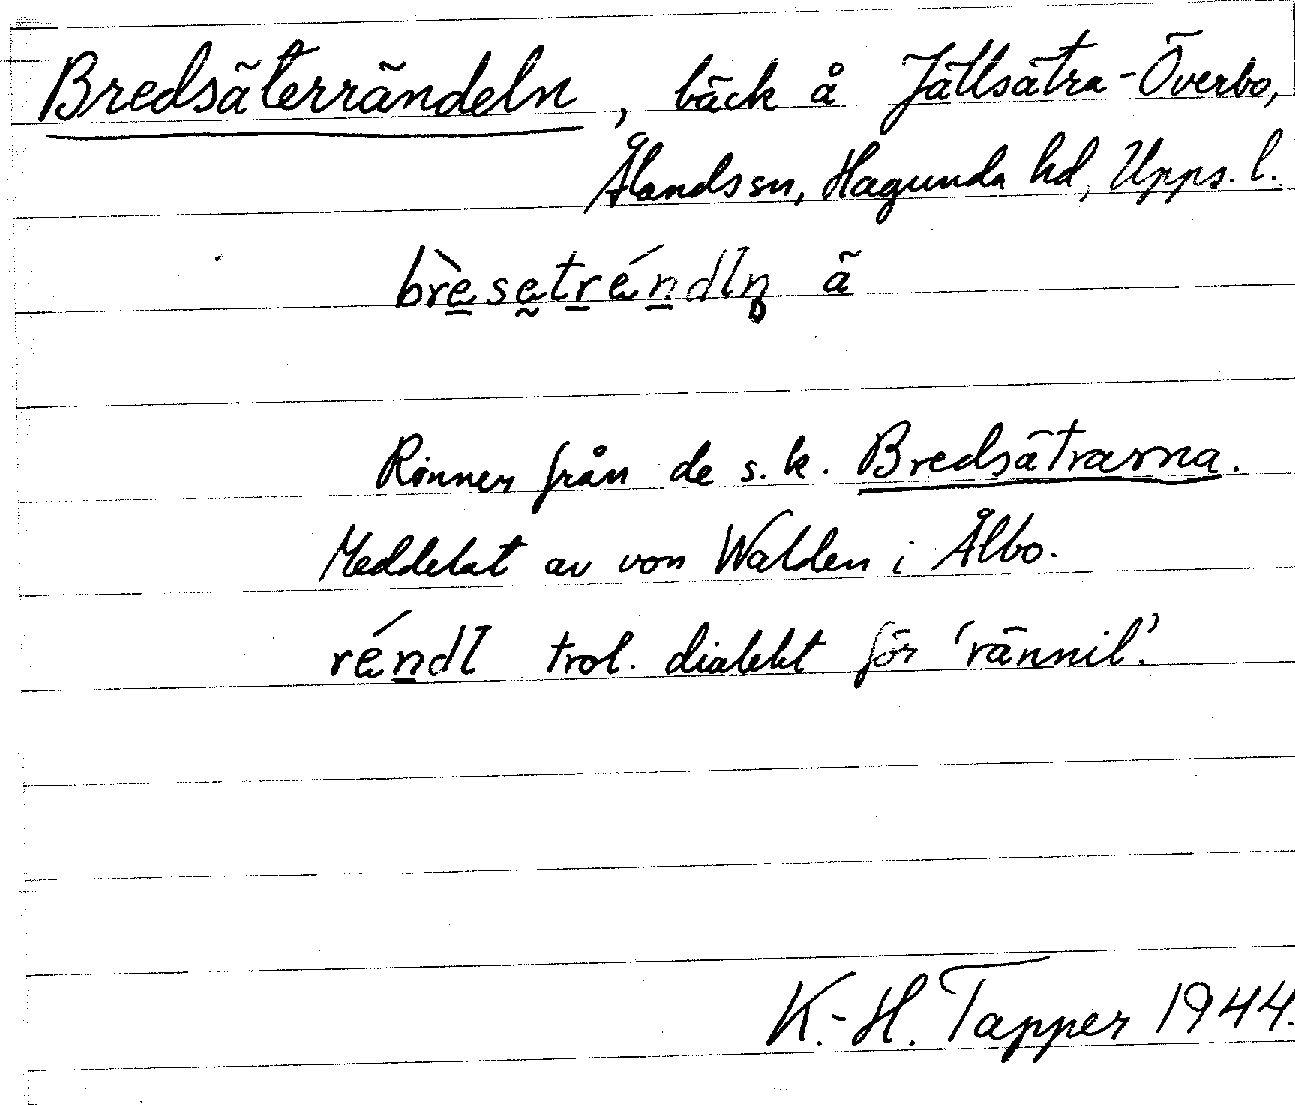 Bredsäterrändeln, bäck å Jättsätra-Överbo,
Ålands sn, Hagunda hd, Upps. l.
brèsetréndln̥ ä
Rinner från de s.k. Bredsätrarna.
Meddelat av von Walden i Ålbo.
réndl trol. dialekt för 'rännil'.
K.-H. Tapper 1944.